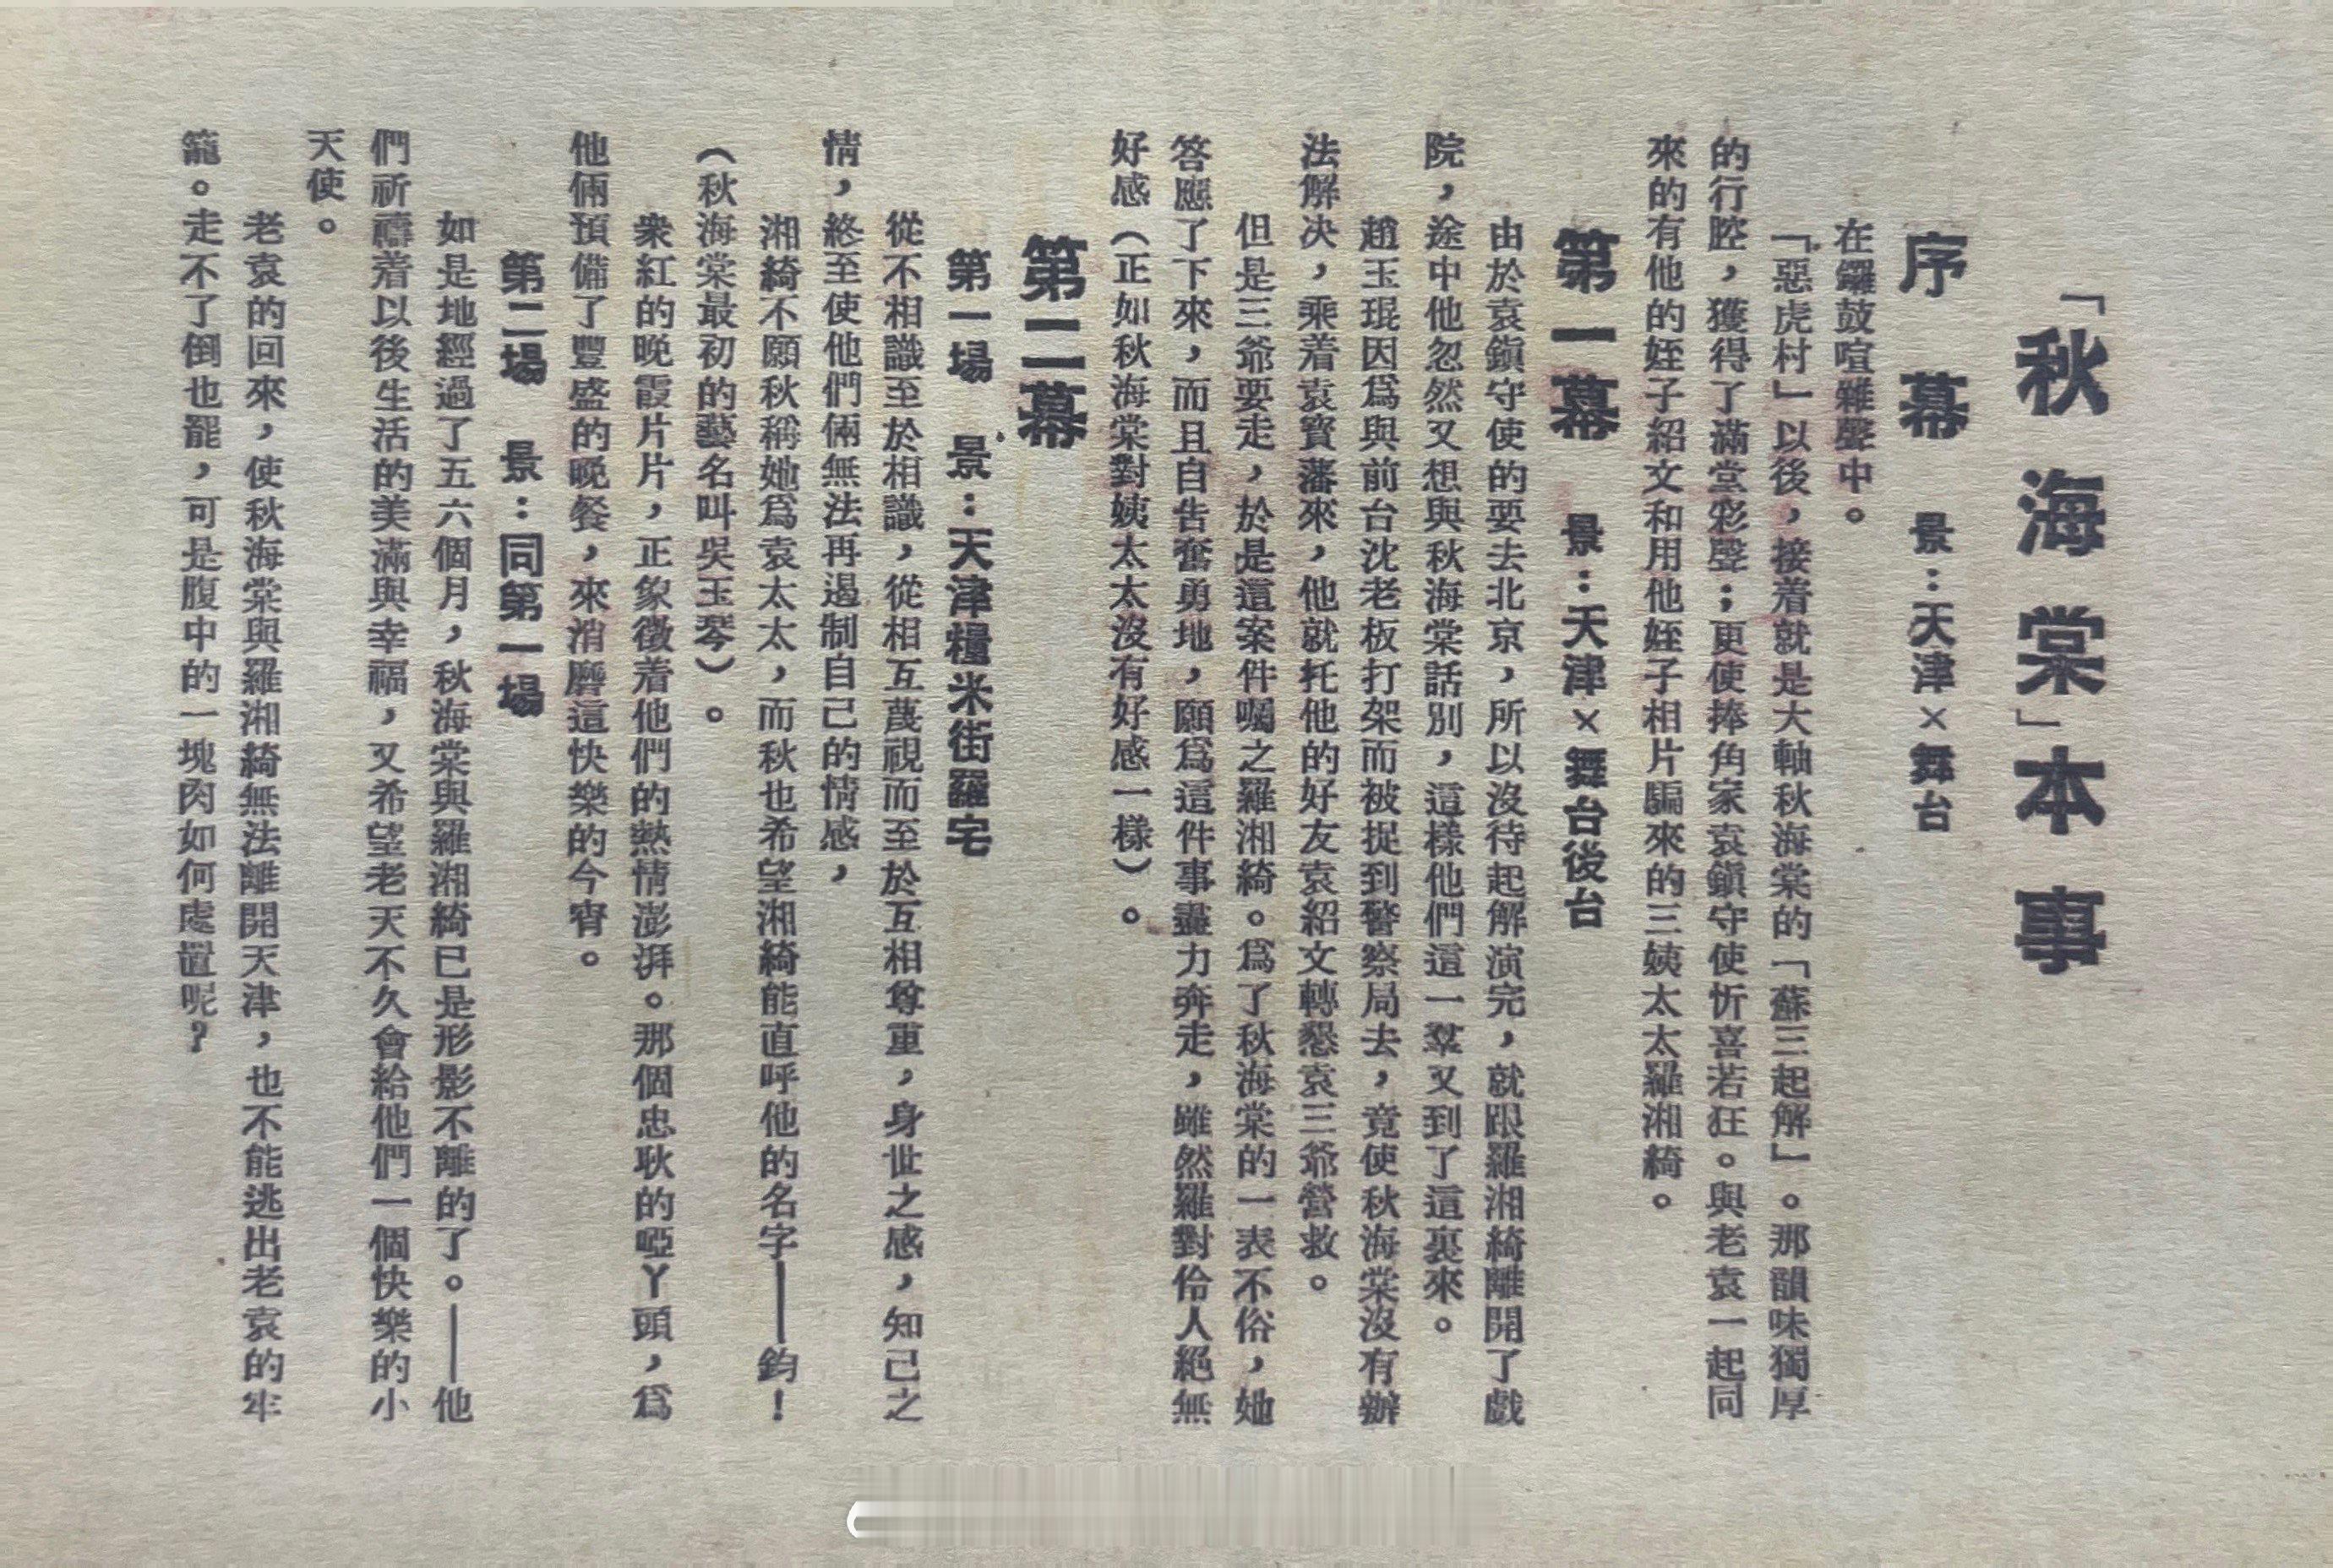 「秋海棠」本事
序幕　景：天津×舞台
在鑼鼓喧雜聲中。
「惡虎村」以後，接着就是大軸秋海棠的「蘇三起解」。那韻味獨厚
的行腔，獲得了滿堂彩聲；更使捧角家袁鎭守使忻喜若狂。與老袁一起同
來的有他的姪子紹文和用他姪子相片騙來的三姨太太羅湘綺。
第一幕　景：天津×舞台後台
由於袁鎭守使的要去北京，所以沒待起解演完，就跟羅湘綺離開了戲
院，途中他忽然又想與秋海棠話別，這樣他們這一羣又到了這裏來。
趙玉琨因爲與前台沈老板打架而被捉到警察局去，竟使秋海棠沒有辦
法解决，乘着袁寶藩來，他就托他的好友袁紹文轉懇袁三爺營救。
但是三爺要走，於是這案件囑之羅湘綺。爲了秋海棠的一表不俗，她
答應了下來，而且自告奮勇地，願爲這件事盡力奔走，雖然羅對伶人絕無
好感（正如秋海棠對姨太太沒有好感一樣）。
第二幕
第一場　景：天津糧米街羅宅
從不相識至於相識，從相互蔑視而至於互相尊重，身世之感，知己之
情，終至使他們倆無法再遏制自己的情感，
湘綺不願秋稱她爲袁太太，而秋也希望湘綺能直呼他的名字——鈞！
（秋海棠最初的藝名叫吳玉琴）。
衆紅的晚霞片片，正象徵着他們的熱情澎湃。那個忠耿的啞丫頭，爲
他倆預備了豐盛的晚餐，來消磨這快樂的今宵。
第二場　景：同第一場
如是地經過了五六個月，秋海棠與羅湘綺已是形影不離的了。——他
們祈禱着以後生活的美滿與幸福，又希望老天不久會給他們一個快樂的小
天使。
老袁的回來，使秋海棠與羅湘綺無法離開天津，也不能逃出老袁的牢
籠。走不了倒也罷，可是腹中的一塊肉如何處置呢？